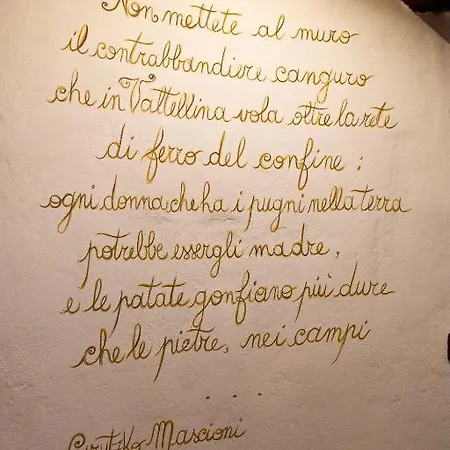 Non mettete al muro
il contrabbandiere canguro
che in Vattellina vola oltre la rete
di ferro del confine :
ogni donna che ha i pugni nella terra
potrebbe essergli madre,
e le patate gonfiano più dure
che le pietre, nei campi
. . .
Mascioni